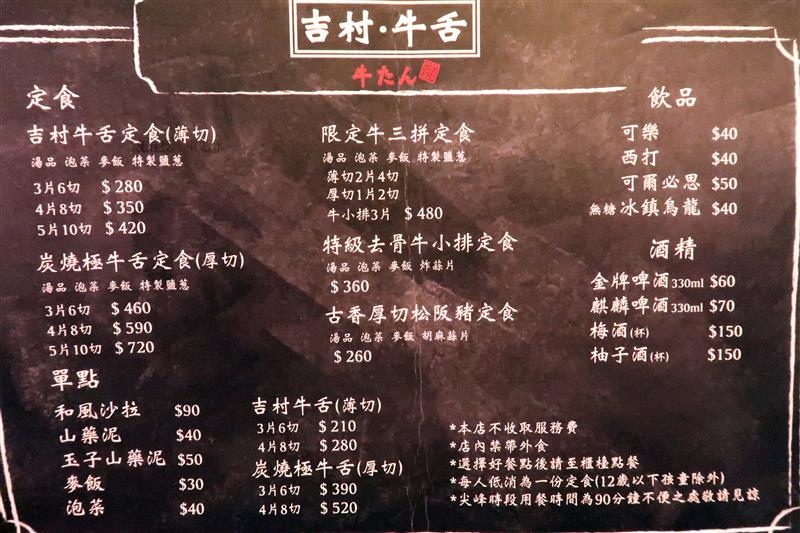 吉村·牛舌
牛たん
定食
吉村牛舌定食(薄切)
湯品 泡菜 麥飯 特製鹽蔥
3片6切 $280
4片8切 $350
5片10切 $420
炭燒極牛舌定食(厚切)
湯品 泡菜 麥飯 特製鹽蔥
3片6切 $460
4片8切 $590
5片10切 $720
限定牛三拼定食
湯品 泡菜 麥飯 特製鹽蔥
薄切2片4切
厚切1片2切
牛小排3片 $480
特級去骨牛小排定食
湯品 泡菜 麥飯 炸蒜片
$360
古香厚切松阪豬定食
湯品 泡菜 麥飯 胡麻蒜片
$260
飲品
可樂 $40
西打 $40
可爾必思 $50
無糖冰鎮烏龍 $40
酒精
金牌啤酒330ml $60
麒麟啤酒330ml $70
梅酒(杯) $150
柚子酒(杯) $150
單點
和風沙拉 $90
山藥泥 $40
玉子山藥泥 $50
麥飯 $30
泡菜 $40
吉村牛舌(薄切)
3片6切 $210
4片8切 $280
炭燒極牛舌(厚切)
3片6切 $390
4片8切 $520
*本店不收取服務費
*店內禁帶外食
*選擇好餐點後請至櫃檯點餐
*每人低消為一份定食(12歲以下孩童除外)
*尖峰時段用餐時間為90分鐘不便之處敬請見諒